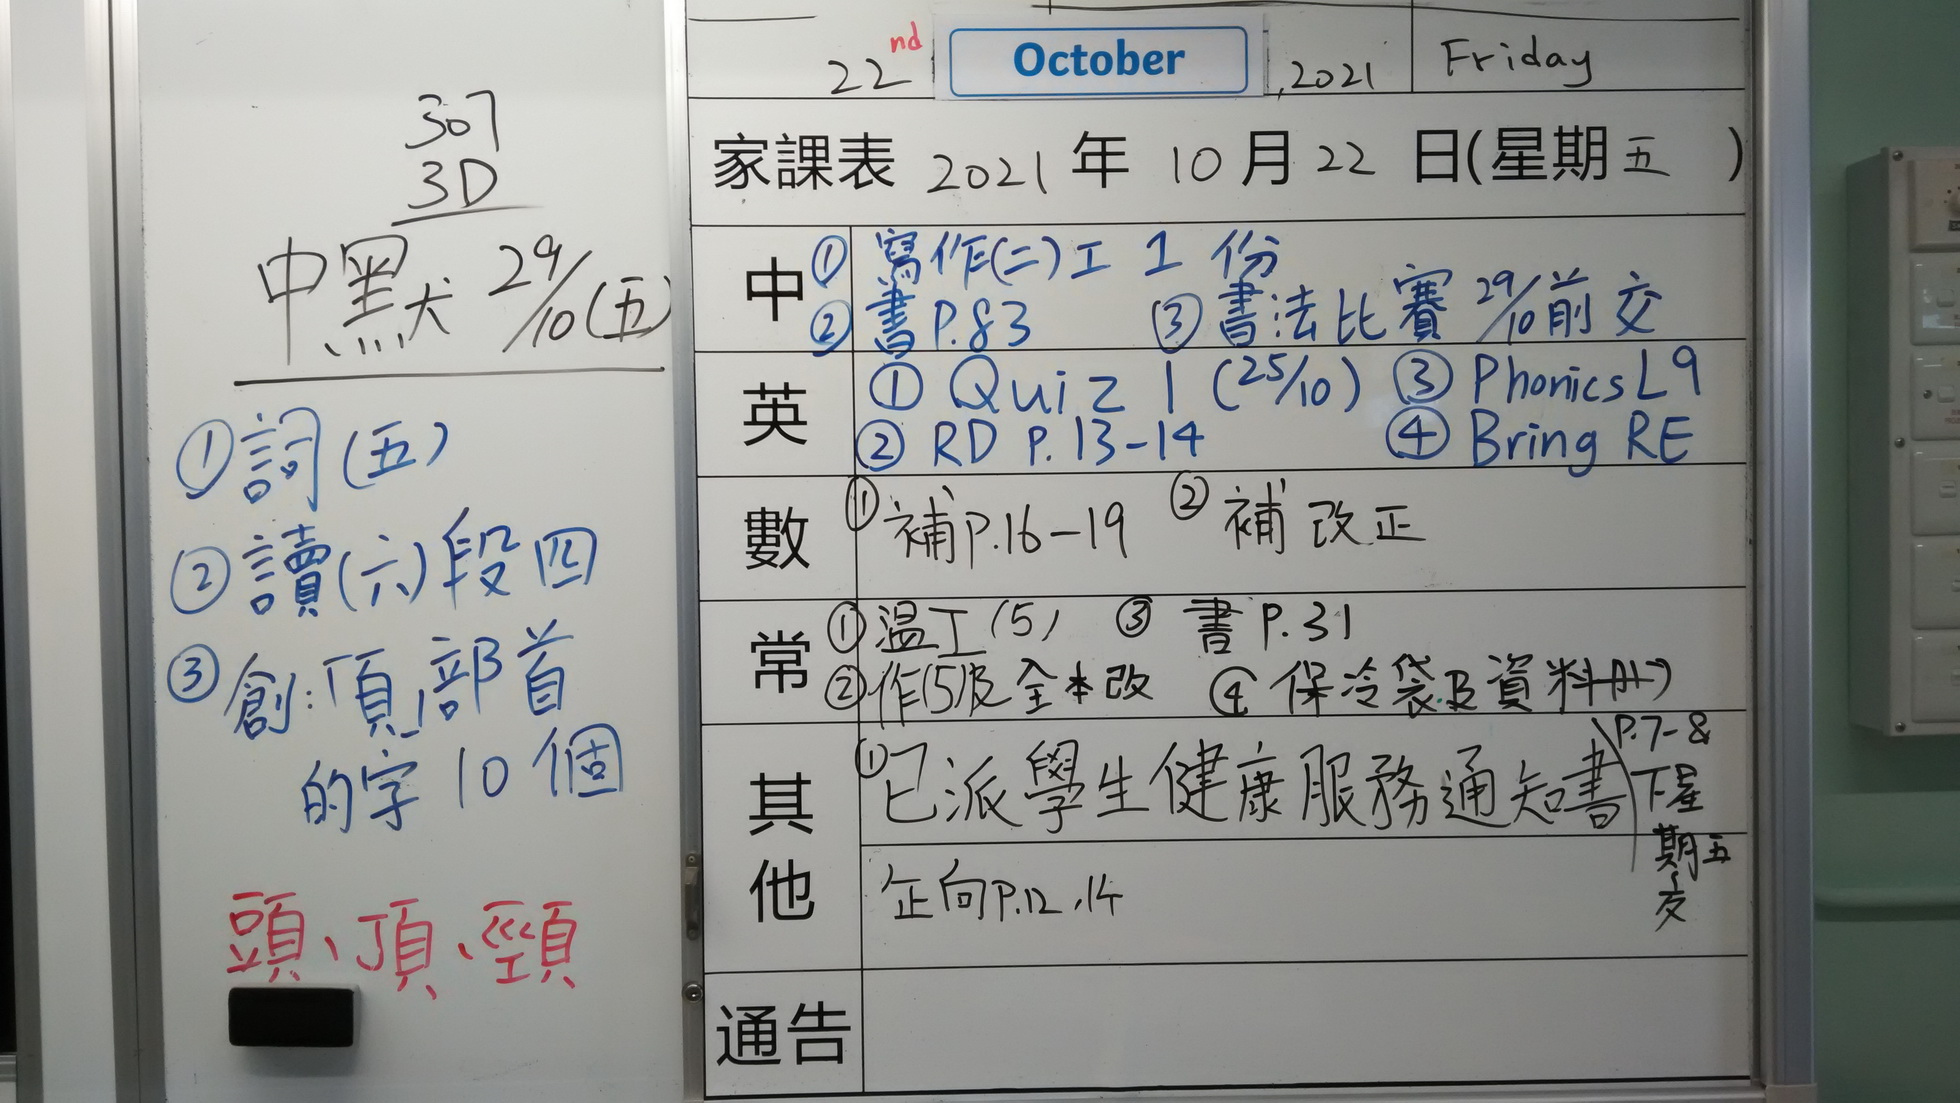 307
3D
中默 29/10(五)
①詞(五)
②讀(六)段四
③創:「頁」部首
的字10個
頭、頂、頸
22nd October, 2021 Friday
家課表 2021 年 10 月 22 日(星期五)
中 ①寫作(二)工1份
②書P.83 ③書法比賽 29/10前交
英 ① Quiz 1 (25/10) ③ Phonics L9
② RD P.13-14 ④ Bring RE
數 ①補P.16-19 ②補改正
常 ①温工(5) ③書P.31
②作(5)及全本改 ④保冷袋及資料冊
P.7-8
其他 ①已派學生健康服務通知書
下星期五交
正向P.12,14
通告